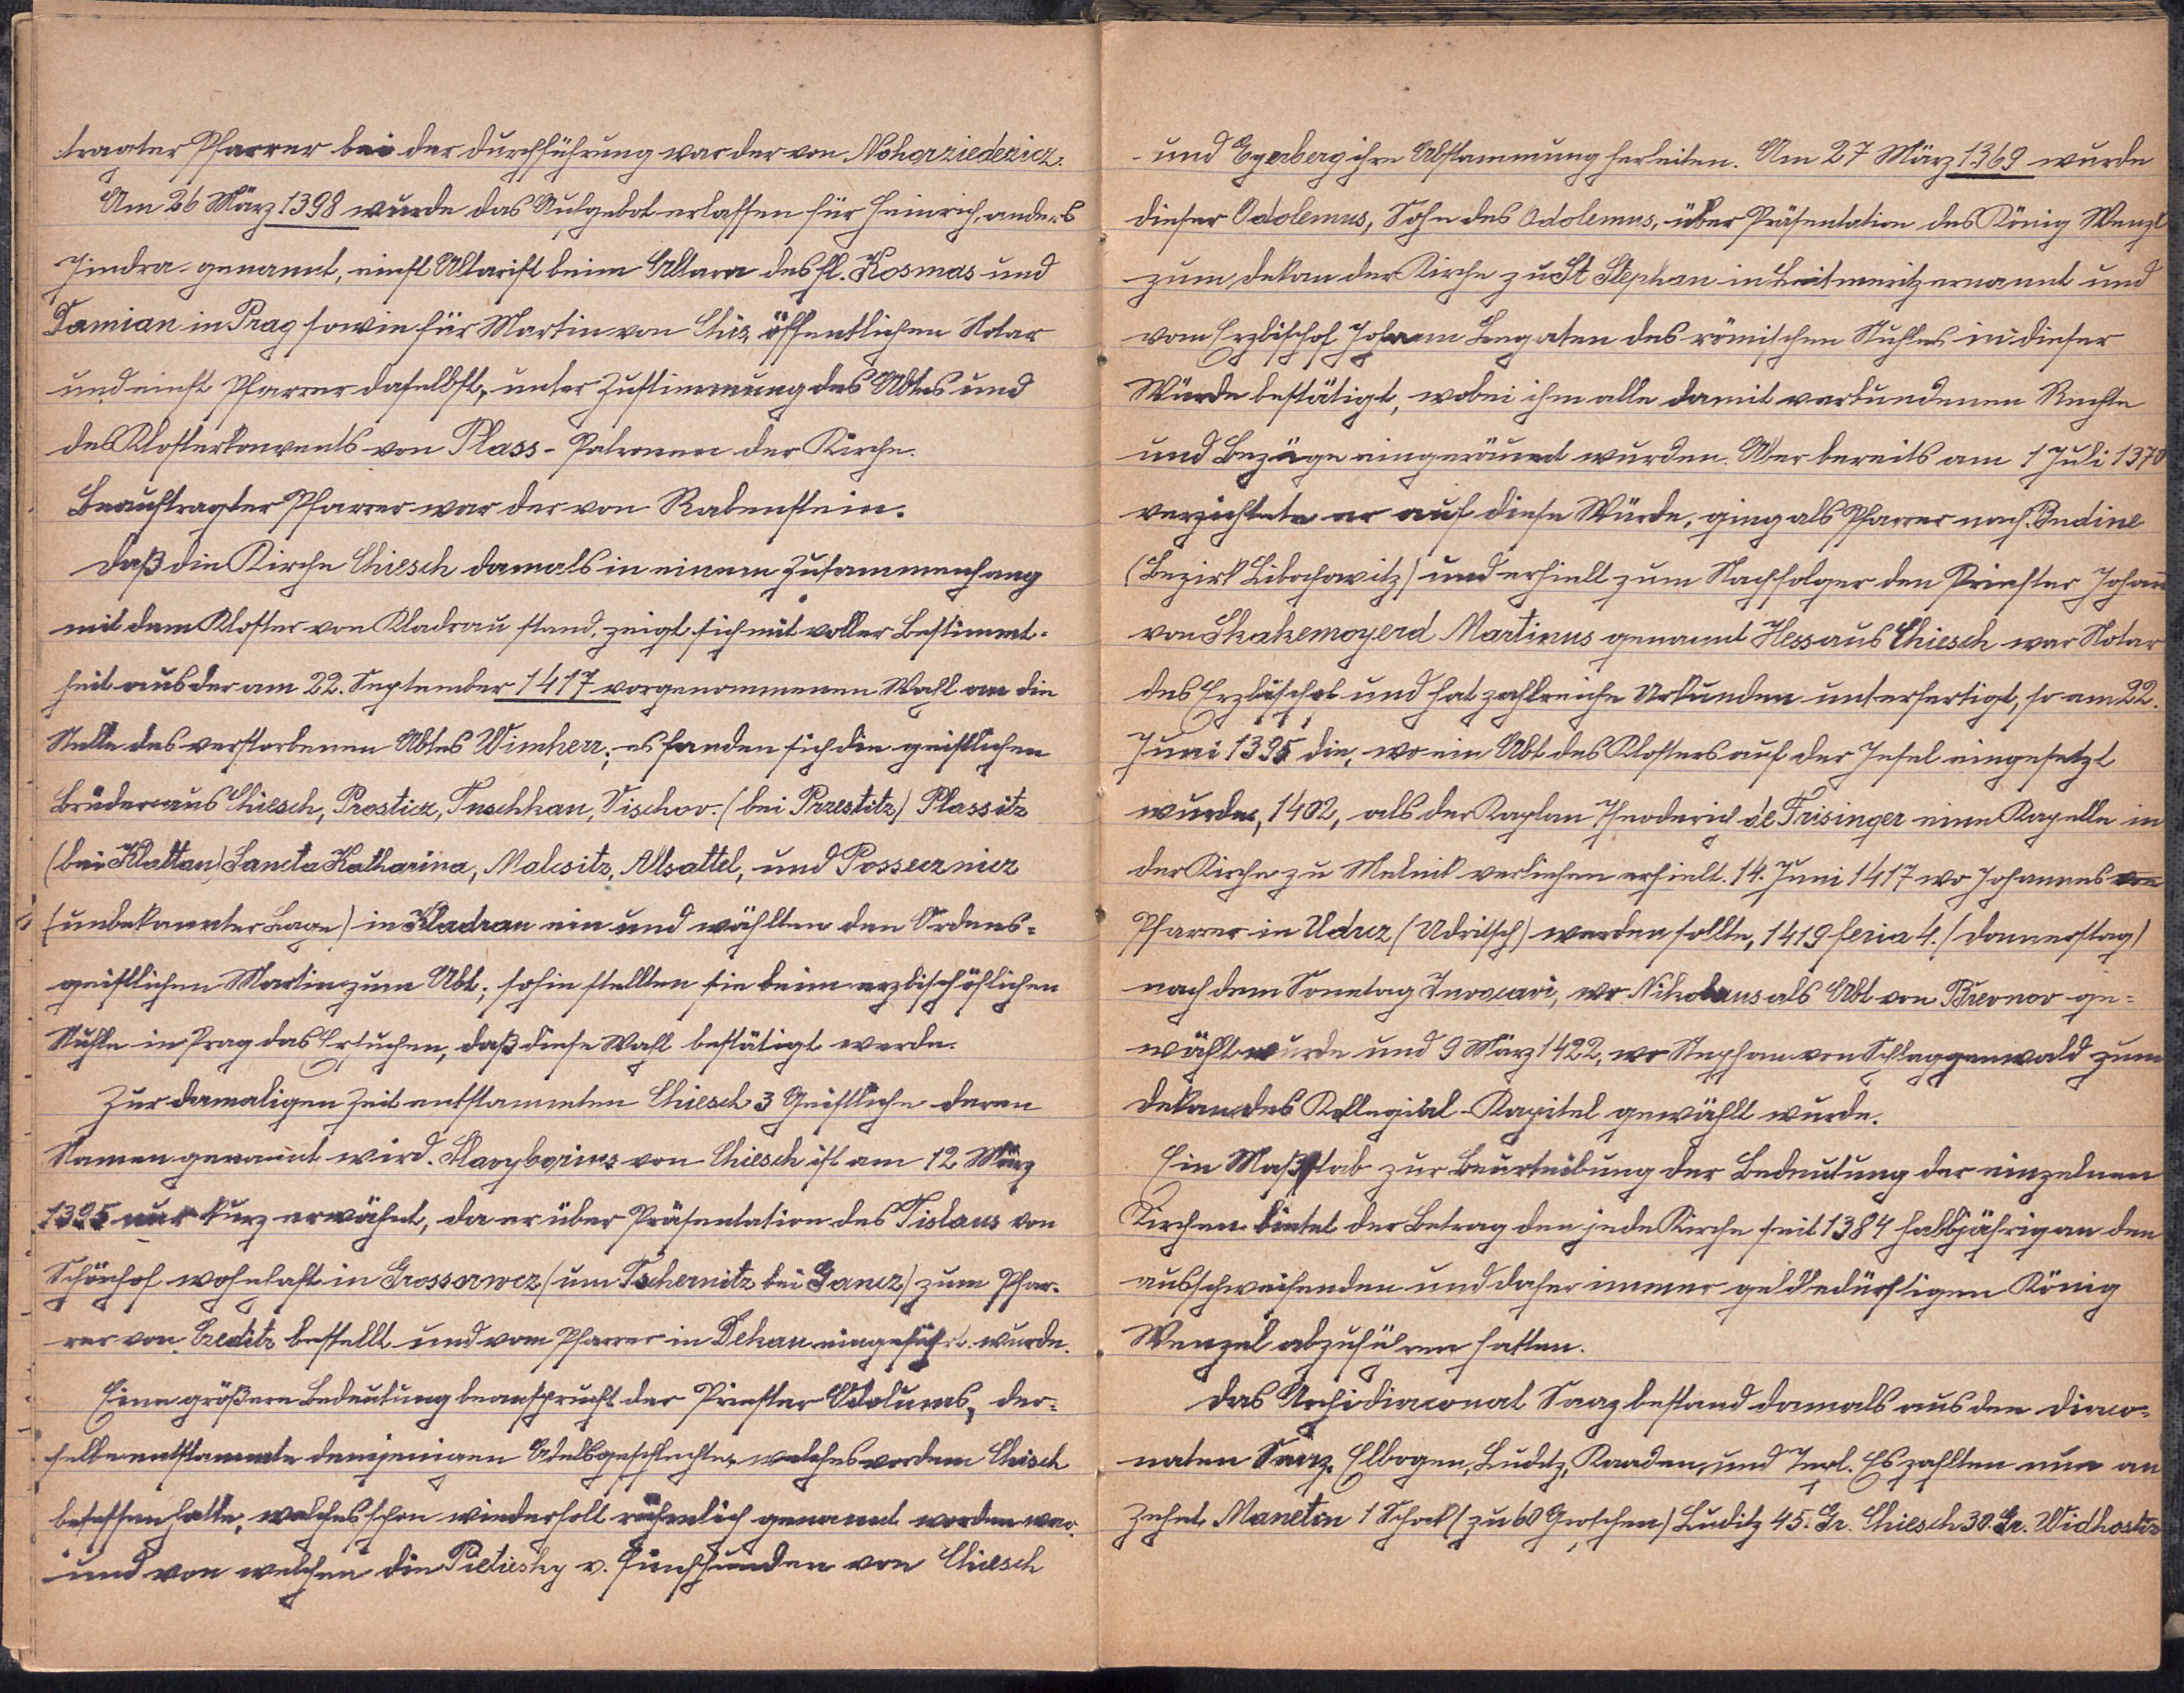 tragter Pfarrer bei der Durchführung war der von Nohorziedezicz.
Am 26 März 1398 wurde das Aufgebot erlassen für Heinrich, anders
Jindra genannt, einst Altarist beim Altare des hl. Kosmas und
Damian in Prag sowie für Martin von Chis öffentlichen Notar
und einst Pfarrer daselbst, unter Zustimmung des Abtes und
des Klosterkonvents von Plass - Patronen der Kirche.
Beauftragter Pfarrer war der von Rabenstein.
Daß die Kirche Chiesch damals in einem Zusammenhang
mit dem Kloster von Kladrau stand, zeigt sich mit voller Bestimmt-
heit aus der am 22. September 1417 vorgenommenen Wahl an die
Stelle des verstorbenen Abtes Wimherr; es fanden sich die geistlichen
Brüder aus Chiesch, Prosticz, Tuschkau, Vischov. (bei Przestitz) Plassitz
(bei Klattau) Sancta Katharina, Malesitz, Altsattel, und Posseeznicz
(unbekannter Lage) in Kladrau ein und wählten den Ordens-
geistlichen Martin zum Abt; sohin stellten sie beim erzbischöflichen
Stuhle in Prag das Ersuchen, daß diese Wahl bestätigt werde.
Zur damaligen Zeit entstammten Chiesch 3 Geistliche deren
Namen genannt wird. Slavyborius von Chiesch ist am 12 März
1395 nur kurz erwähnt, da er über Präsentation des Tislaus von
Schönhof wohnhaft in Grossorwcz (um Tschernitz bei Gancz) zum Pfar-
rer von Czeditz bestellt und vom Pfarrer in Dekau eingeführt wurde.
Eine größere Bedeutung beansprucht der Priester Odolumus, der-
selbe entstammte demjenigen Adelsgeschlechte, welches vordem Chisch
besessen hatte, welches schon wiederholt rühmlich genannt worden war
und von welchem die Pietiesky v. Fünfhunden von Chiesch
und Egerberg ihre Abstammung herleiten. Am 27 März 1369 wurde
dieser Odolemus, Sohn des Odolemus, über Präsentation des König Wenzl
zum Dekan der Kirche zu St Stephan in Leitmeritz ernannt und
vom Erzbischof Johann Legaten des römischen Stuhles in dieser
Würde bestätigt, wobei ihm alle damit verbundenen Rechte
und Bezüge eingeräumt wurden. Aber bereits am 1 Juli 1370
verzichtete er auf diese Würde, ging als Pfarrer nach Budine
(Bezirk Libochowitz) und erhielt zum Nachfolger den Priester Johann
von Skakemoyerd Martinus genannt Hess aus Chiesch war Notar
des Erzbischof und hat zahlreiche Urkunden unterfertigt, so am 22.
Juni 1395 die, wo ein Abt des Klosters auf der Insel eingesetzt
wurde, 1402, als der Kaplan Theoderich de Frisinger eine Kapelle in
der Kirche zu Melnik verliehen erhielt. 14. Juni 1417 wo Johannes von
Pfarrer in Udrcz (Udritsch) werden sollte, 1419 feria 4. (Donnerstag)
nach dem Sonntag Invocavi, wo Nikolaus als Abt von Brevnov ge-
wählt wurde und 9 März 1422, wo Stephan von Schlaggenwald zum
Dekan des Kollegial-Kapitel gewählt wurde.
Ein Maßstab zur Beurteilung der Bedeutung der einzelnen
Kirchen bietet der Betrag den jede Kirche seit 1384 halbjährig an den
ausschweifenden und daher immer geldbedürftigen König
Wenzel abzuführen hatten.
Das Archidiaconat Saaz bestand damals aus den Diaco-
naten Saaz, Elbogen, Luditz, Kaaden, und Tepl. Es zahlten nun an
Zehnt Manetin 1 Schock (zu 60 Groschen) Luditz 45. Gr. Chiesch 30. Gr. Widhostiz